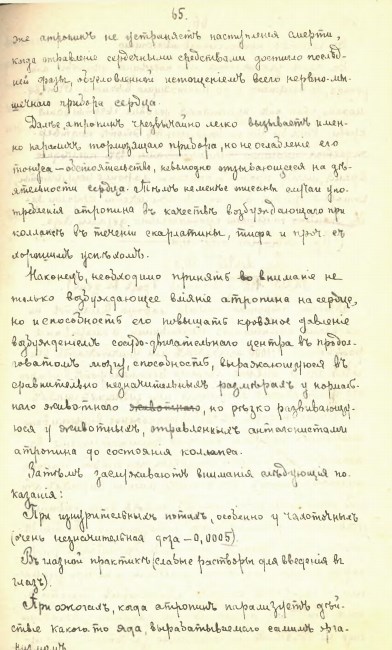 65.
же атропинъ не устраняетъ наступленiя смерти,
когда отравленiе сердечными средствами достигло послѣд-
ней фазы, обусловленной истощенiемъ всего нервно-мы-
шечнаго прибора сердца.
Далѣе атропинъ чрезвычайно легко вызываетъ имен-
но параличъ тормозящаго прибора, но не ослабленiе его
тонуса — обстоятельство, невыгодно отзывающееся на дѣ-
ятельности сердца. Тѣмъ неменѣе описаны случаи упо-
требленiя атропина въ качествѣ возбуждающаго при
коллапсѣ въ теченiи скарлатины, тифа и проч. съ
хорошимъ успѣхомъ.
Наконецъ, необходимо принять во вниманiе не
только возбуждающее влiянiе атропина на сердце,
но и способность его повышать кровяное давленiе
возбужденiемъ сосудо-двигательнаго центра въ продол-
говатомъ мозгу, способность, выражающуюся въ
сравнительно незначительныхъ размѣрахъ у нормаль-
наго животнаго животнаго, но рѣзко развивающу-
юся у животныхъ, отравленныхъ антагонистами
атропина до состоянiя коллапса.
Затѣмъ заслуживаютъ вниманiя слѣдующiя по-
казанiя:
При изнурительныхъ потахъ, особенно у чахоточныхъ
(очень незначительная доза — 0,0005).
Въ глазной практикѣ (слабые растворы для введенiя въ
глазъ).
При ожогахъ, когда атропинъ парализуетъ дѣй-
ствiе какого-то яда, вырабатываемого самимъ орга-
низмомъ